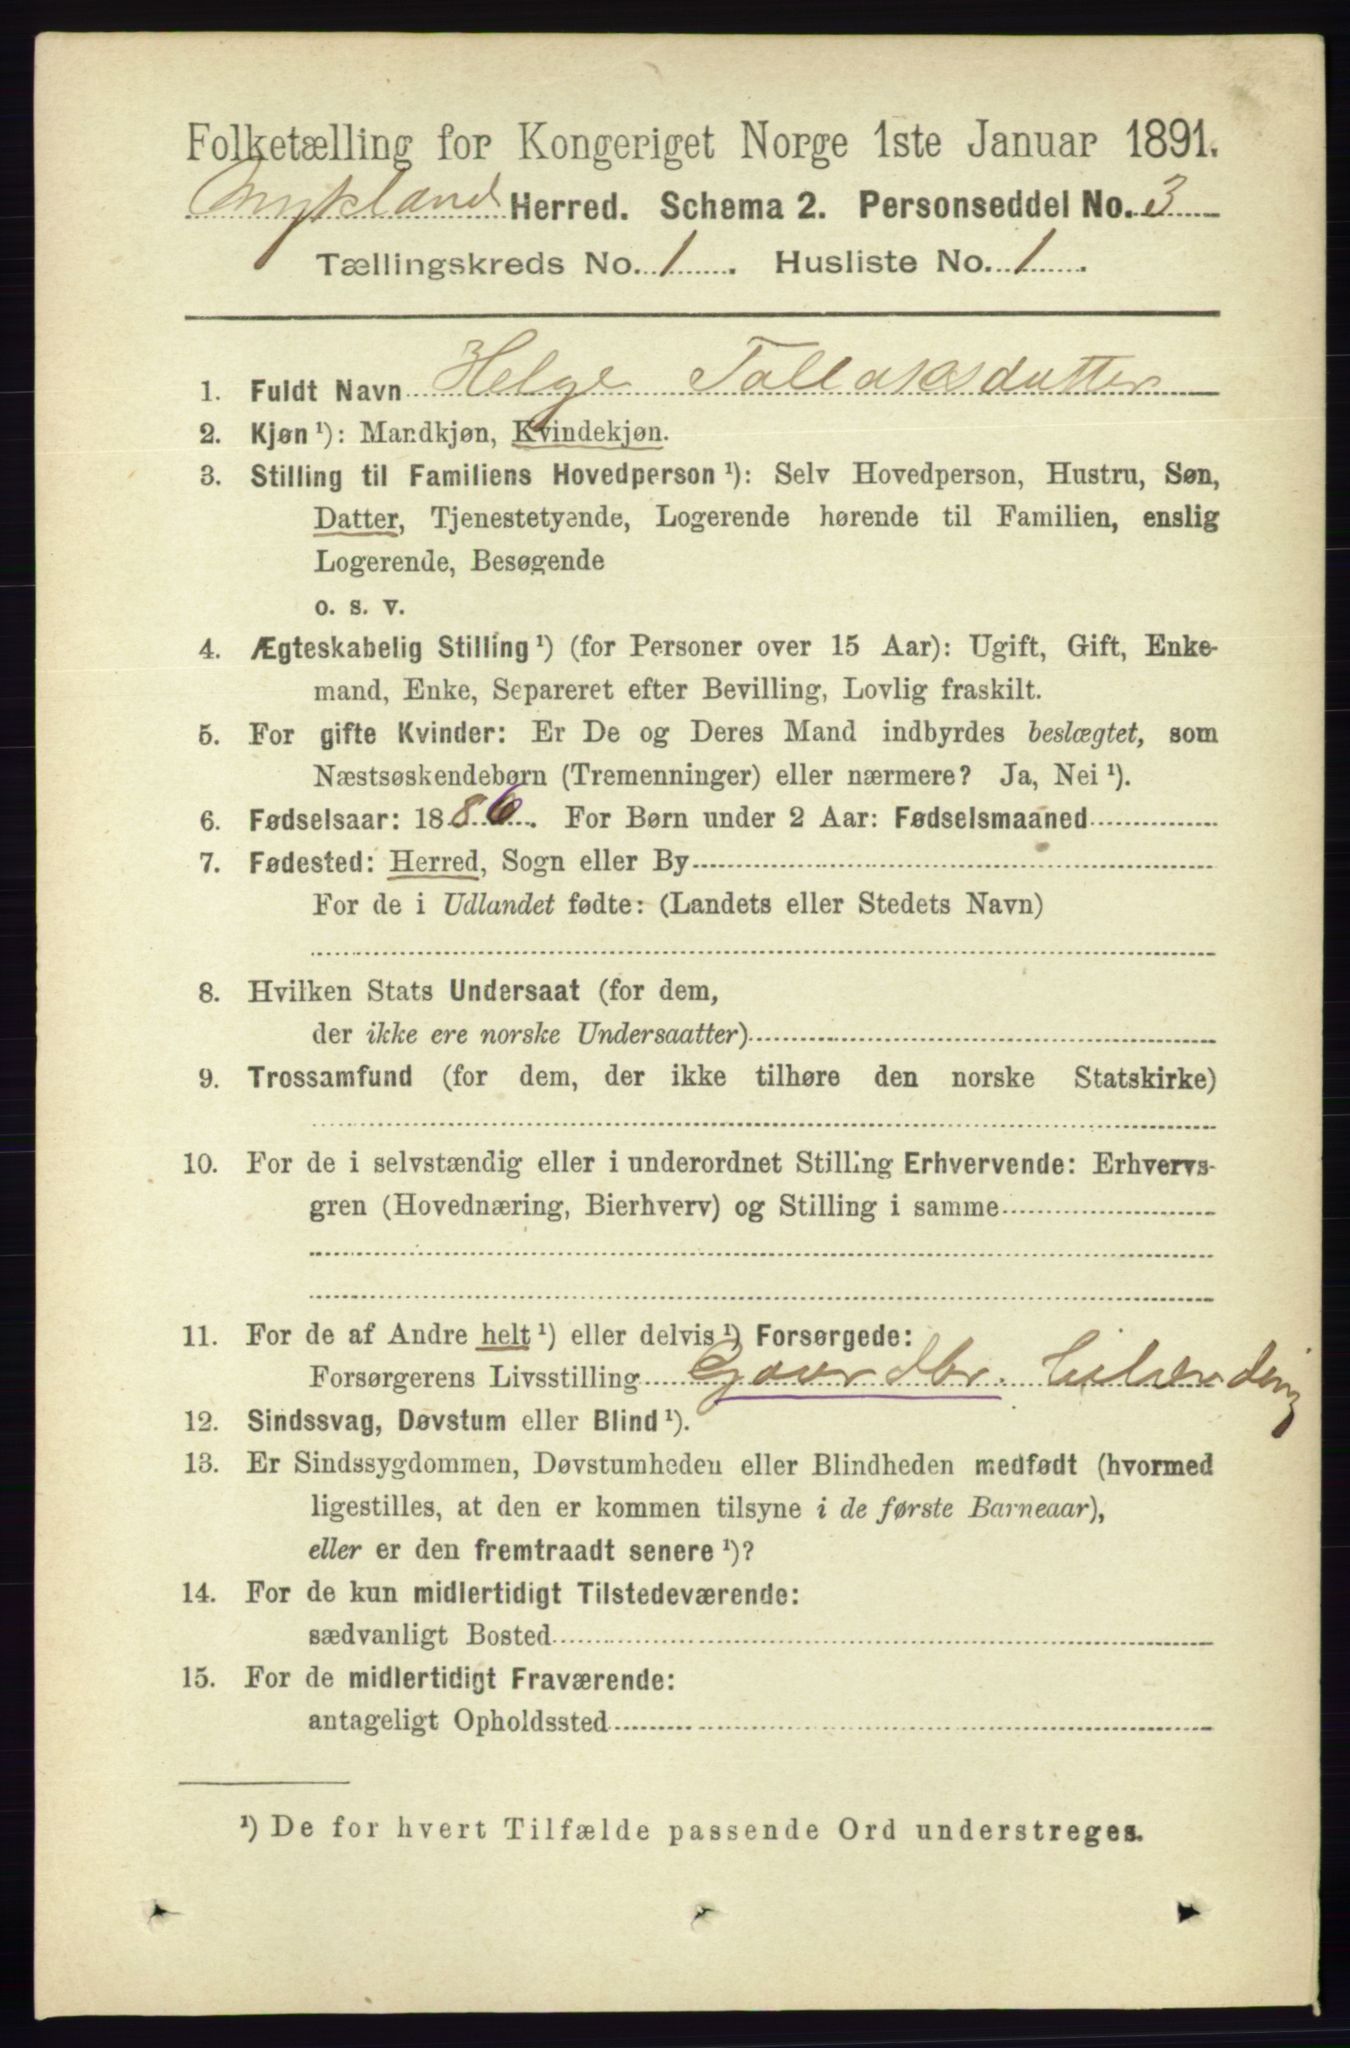 Folketælling for Kongeriget Norge 1ste Januar 1891.
Mykland Herred. Schema 2. Personseddel No. 3
Tællingskreds No. 1. Husliste No. 1.
1. Fuldt Navn Helge Tallaksdatter
2. Kjøn ¹): Mandkjøn, Kvindekjøn.
3. Stilling til Familiens Hovedperson ¹): Selv Hovedperson, Hustru, Søn,
Datter, Tjenestetyende, Logerende hørende til Familien, enslig
Logerende, Besøgende
o. s. v.
4. Ægteskabelig Stilling ¹) (for Personer over 15 Aar): Ugift, Gift, Enke-
mand, Enke, Separeret efter Bevilling, Lovlig fraskilt.
5. For gifte Kvinder: Er De og Deres Mand indbyrdes beslægtet, som
Næstsøskendebørn (Tremenninger) eller nærmere? Ja, Nei ¹).
6. Fødselsaar: 1886. For Børn under 2 Aar: Fødselsmaaned
7. Fødested: Herred, Sogn eller By
For de i Udlandet fødte: (Landets eller Stedets Navn)
8. Hvilken Stats Undersaat (for dem,
der ikke ere norske Undersaatter)
9. Trossamfund (for dem, der ikke tilhøre den norske Statskirke)
10. For de i selvstændig eller i underordnet Stilling Erhvervende: Erhvervs-
gren (Hovednæring, Bierhverv) og Stilling i samme
11. For de af Andre helt ¹) eller delvis ¹) Forsørgede:
Forsørgerens Livsstilling Gaardbr.
12. Sindssvag, Døvstum eller Blind ¹).
13. Er Sindssygdommen, Døvstumheden eller Blindheden medfødt (hvormed
ligestilles, at den er kommen tilsyne i de første Barneaar),
eller er den fremtraadt senere ¹)?
14. For de kun midlertidigt Tilstedeværende:
sædvanligt Bosted
15. For de midlertidigt Fraværende:
antageligt Opholdssted
¹) De for hvert Tilfælde passende Ord understreges.